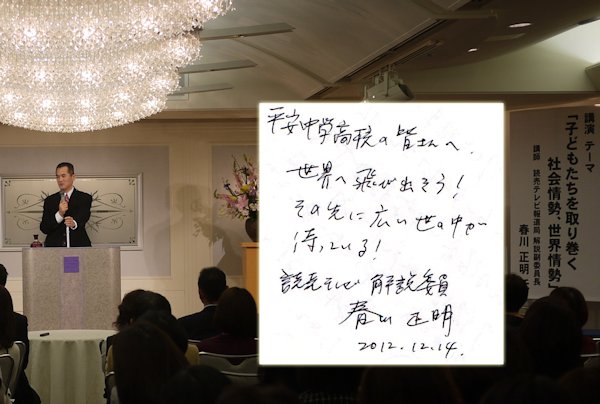 平安中学高校の皆さんへ、
世界へ飛び出そう！
その先に広い世の中が
待っている！
読売テレビ 解説委員
春川 正明
2012.12.14.
講演 テーマ
「子どもたちを取り巻く
社会情勢、世界情勢」
講師 読売テレビ報道局 解説副委員長
春川 正明